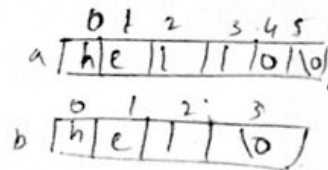 0 1 2 3 4 5
a h e l l o \0
0 1 2 3
b h e l \0